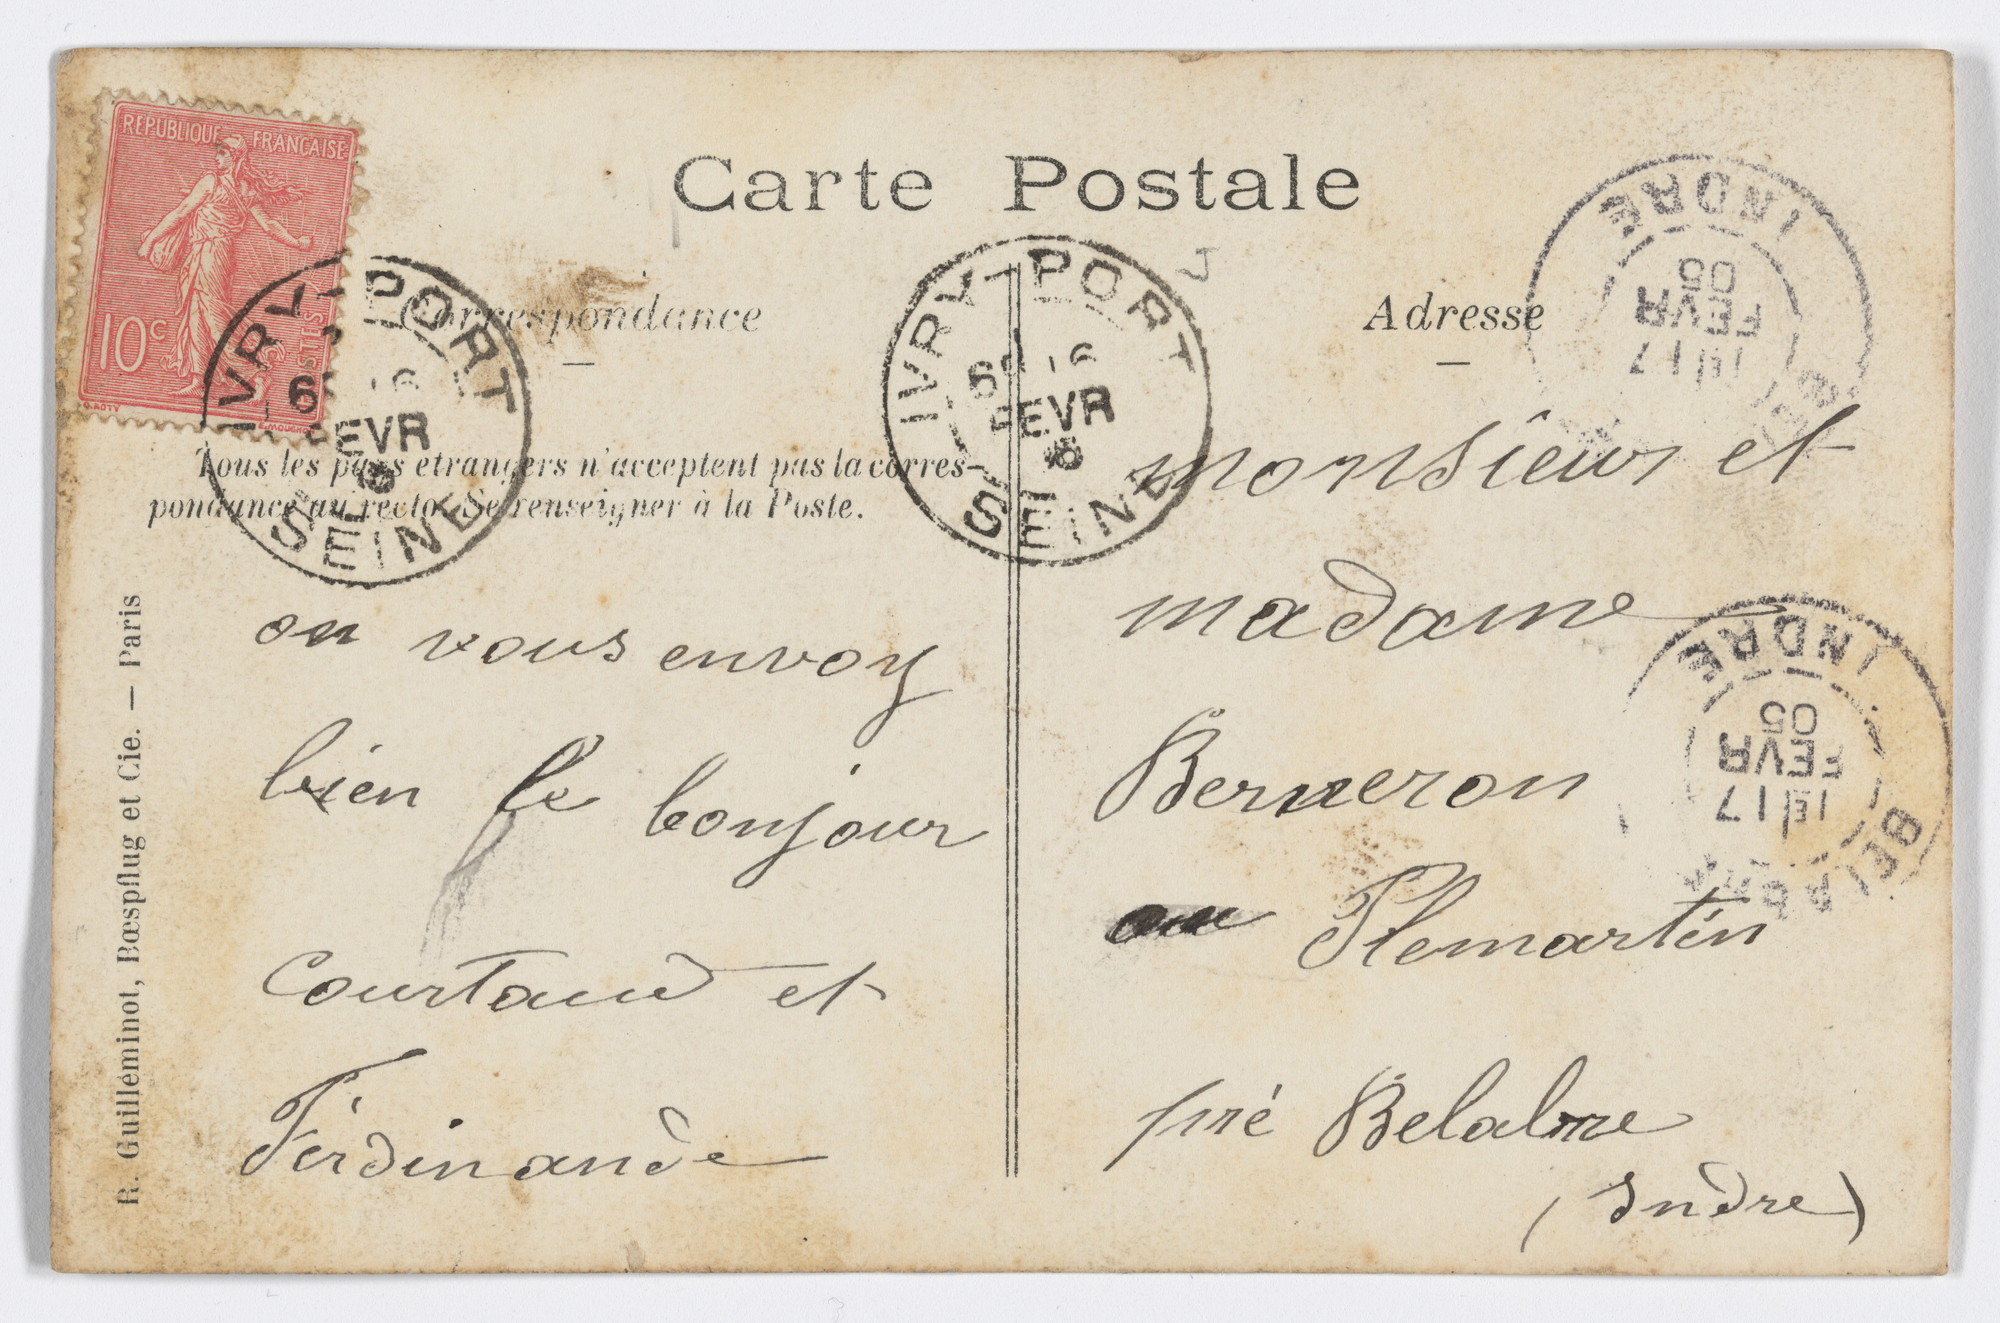 Carte Postale
REPUBLIQUE FRANCAISE
10c
POSTES
Correspondance
Adresse
IVRY-PORT
FEVR
SEINE
IVRY-PORT
FEVR
SEINE
INDRE
05
FEVR
17
INDRE
05
FEVR
17
Tous les pays etrangers n'acceptent pas la corres-
pondance au recto. Se renseigner à la Poste.
on vous envoy
bien le bonjour
Courtaud et
Ferdinande
monsieur et
madame
Berneron
au Plemartin
pré Belabre
(Indre)
R. Guilléminot, Bœspflug et Cie. — Paris